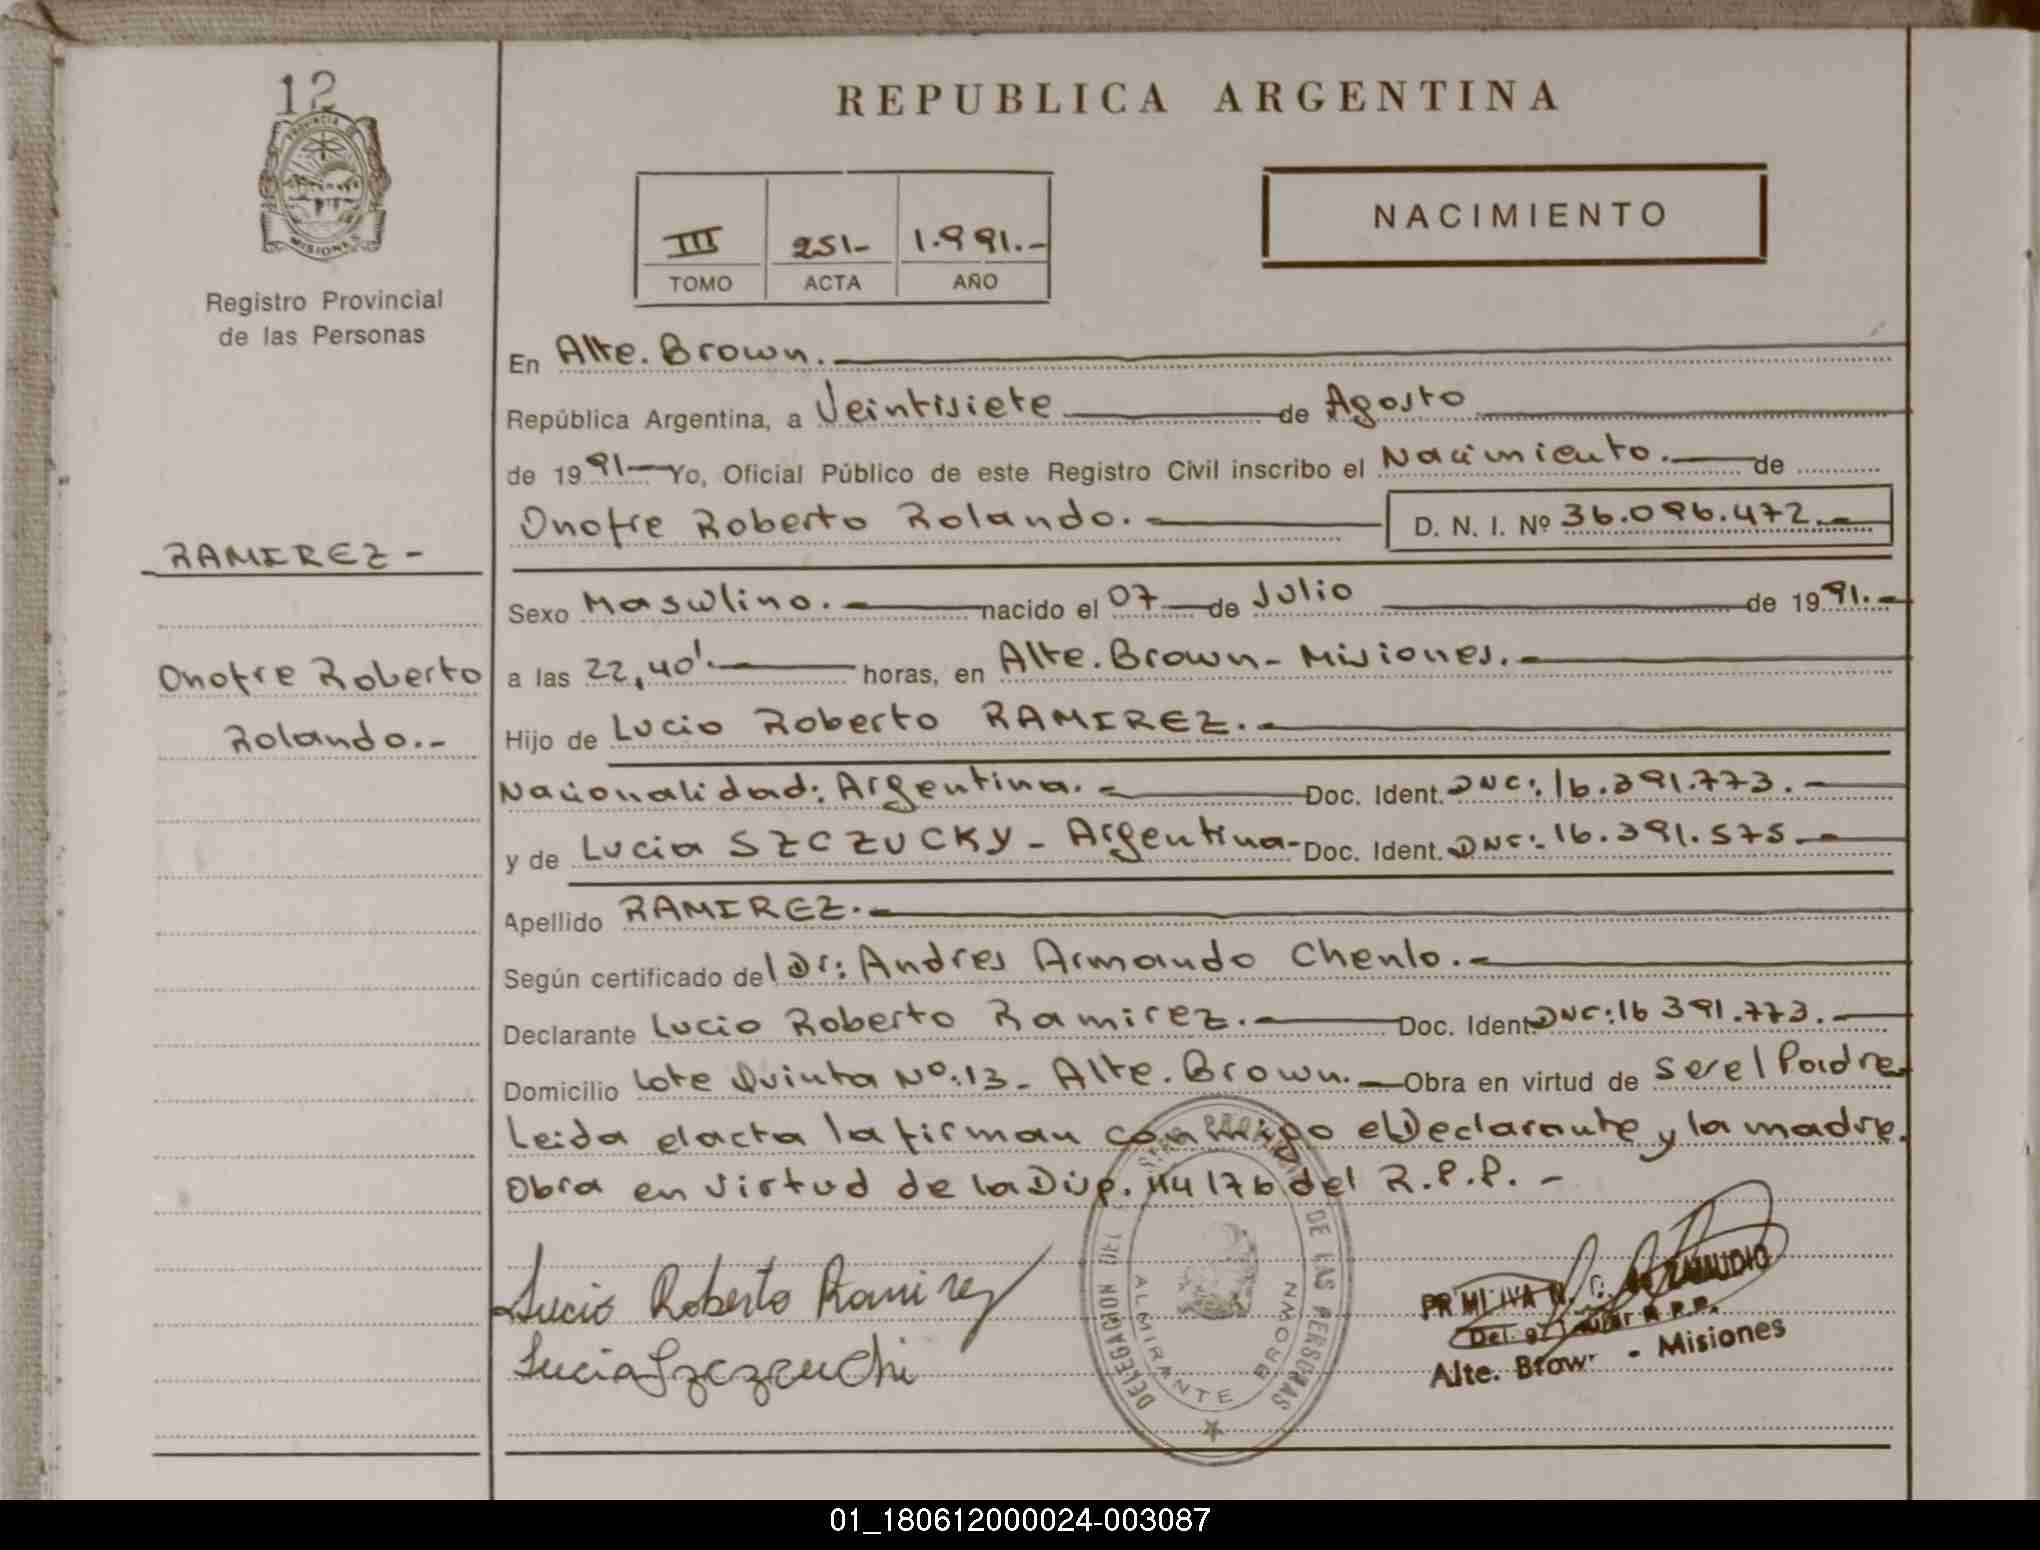 12
PROVINCIA DE
MISIONES
Registro Provincial
de las Personas
RAMIREZ -
Onofre Roberto
Rolando.-
REPUBLICA ARGENTINA
III 251- 1.991.-
TOMO ACTA AÑO
NACIMIENTO
En Alte. Brown.
República Argentina, a Veintisiete de Agosto
de 1991 Yo, Oficial Público de este Registro Civil inscribo el Nacimiento. de
Onofre Roberto Rolando.- D. N. I. Nº 36.096.472.-
Sexo Masculino.- nacido el 07 de Julio de 1991.-
a las 22,40'.- horas, en Alte. Brown - Misiones.-
Hijo de Lucio Roberto RAMIREZ.-
Nacionalidad: Argentina.- Doc. Ident. DNI: 16.391.773.-
y de Lucia SZCZUCKY - Argentina- Doc. Ident. DNI: 16.391.575.-
Apellido RAMIREZ.-
Según certificado del Dr: Andres Armando Chenlo.-
Declarante Lucio Roberto Ramirez.- Doc. Ident. DNI: 16 391.773.-
Domicilio Lote Quinta Nº:13 - Alte. Brown.- Obra en virtud de Ser el Padre
Leida el acta la firman conmigo el Declarante y la madre.
Obra en virtud de la Disp. 44/76 del R.P.P. -
Lucio Roberto Ramirez
Lucia Szczeuchi
DELEGACION DEL DE LAS PERSONAS
ALMIRANTE BROWN
PRIMITIVA N.
R.P.P.
Alte. Brown - Misiones
01_180612000024-003087